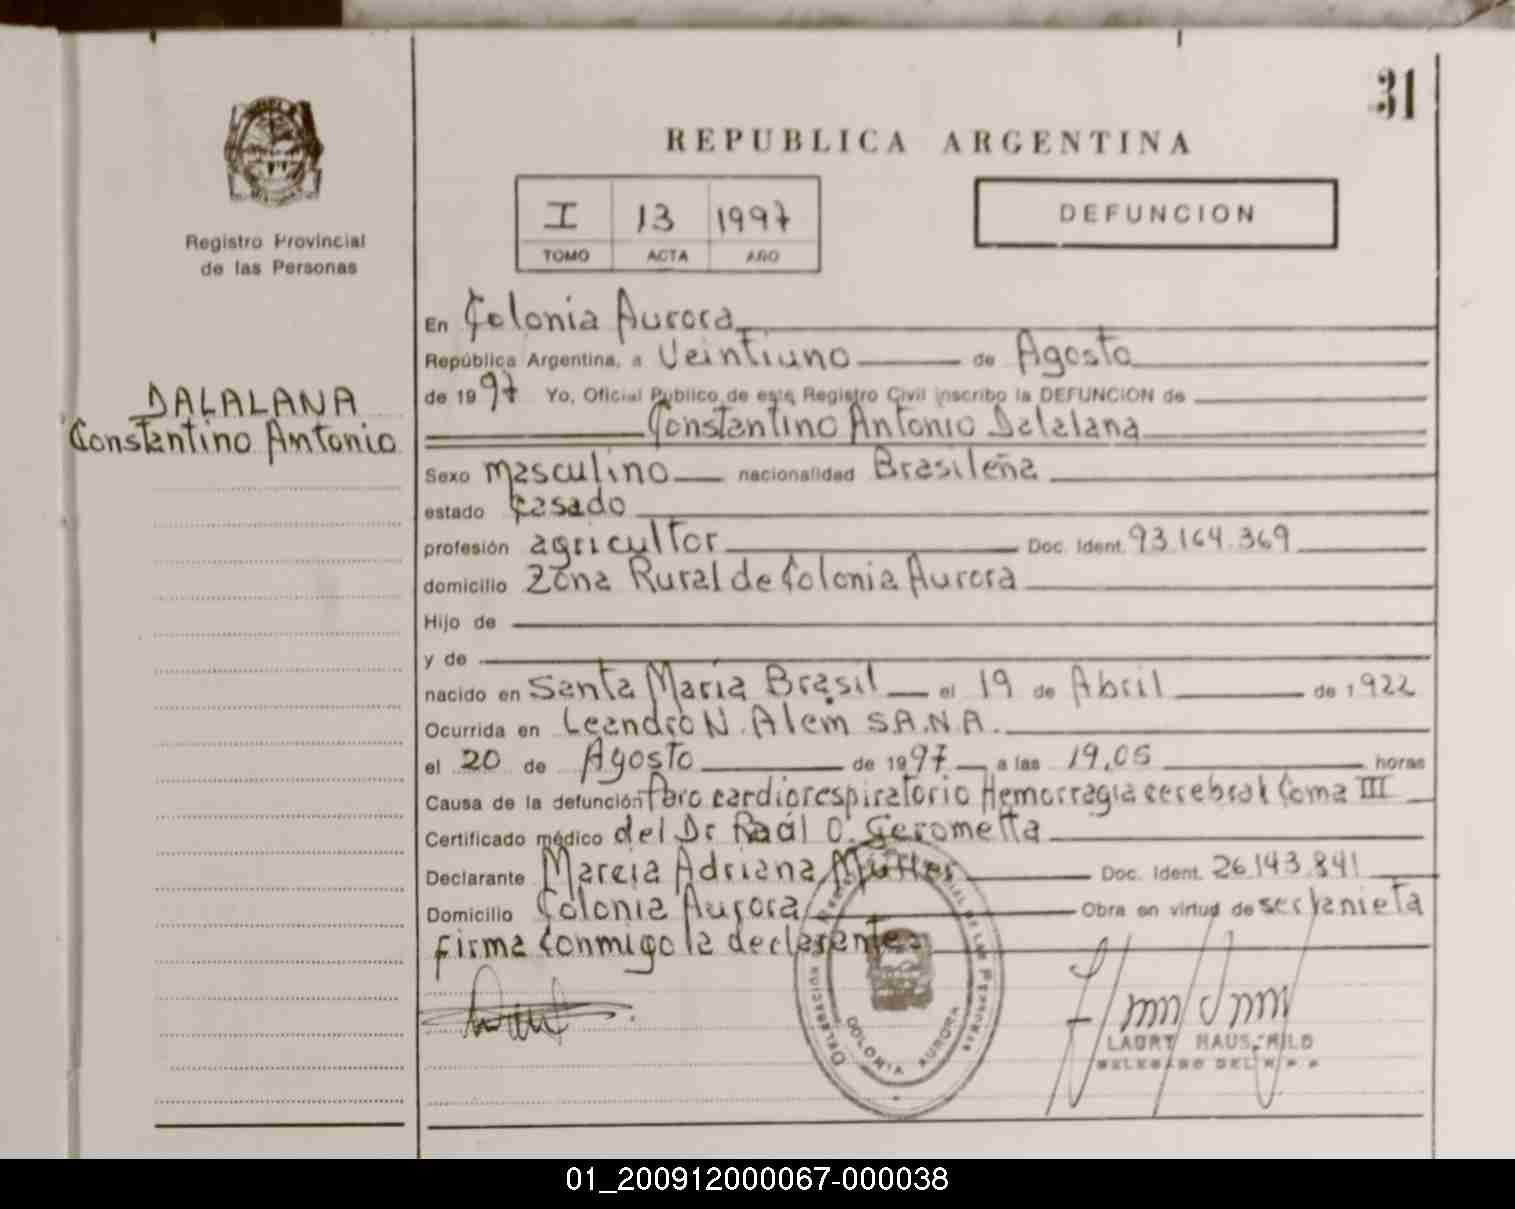 31
REPUBLICA ARGENTINA
I 13 1997
TOMO ACTA AÑO
DEFUNCION
Registro Provincial
de las Personas
DALALANA
Constantino Antonio
En Colonia Aurora
República Argentina, a Veintiuno de Agosto
de 1997 Yo, Oficial Publico de este Registro Civil inscribo la DEFUNCION de
Constantino Antonio Dalalana
Sexo masculino nacionalidad Brasileña
estado Casado
profesión agricultor Doc. Ident. 93.164.369
domicilio Zona Rural de Colonia Aurora
Hijo de
y de
nacido en Santa María Brasil el 19 de Abril de 1922
Ocurrida en Leandro N. Alem S.A.N.A.
el 20 de Agosto de 1997 a las 19,05 horas
Causa de la defunción Paro cardiorespiratorio Hemorragia cerebral Coma III
Certificado médico del Dr Raúl O. Gerometta
Declarante Marcia Adriana Müller Doc. Ident. 26.143.841
Domicilio Colonia Aurora Obra en virtud de ser la nieta
firma conmigo la declarante
COLONIA AURORA
01_200912000067-000038